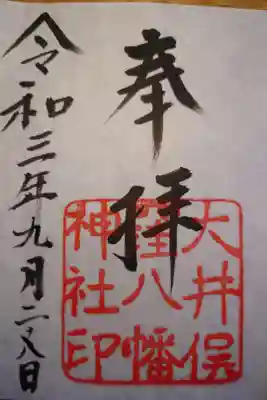 奉拝
大井俣
窪八幡
神社印
令和三年九月二八日